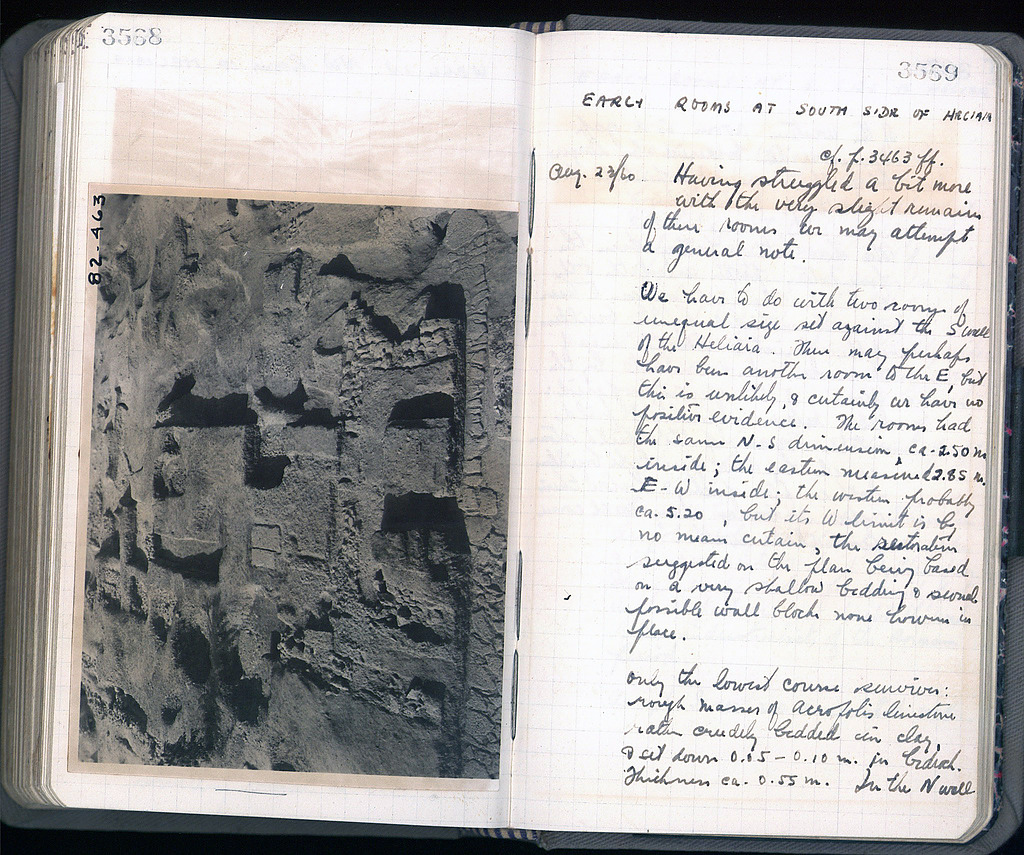 3568
82-463
3569
EARLY ROOMS AT SOUTH SIDE OF HELIAIA
cf. p. 3463 ff.
Aug. 23/60 Having struggled a bit more
with the very slight remains
of these rooms we may attempt
a general note.
We have to do with two rooms of
unequal size set against the S wall
of the Heliaia. There may perhaps
have been another room to the E, but
this is unlikely, & certainly we have no
positive evidence. The rooms had
the same N-S dimension, ca. 2.50 m
inside; the eastern measured 2.85 m.
E-W inside; the western probably
ca. 5.20, but its W limit is by
no means certain, the restoration
suggested on the plan being based
on a very shallow bedding & several
possible wall blocks none however in
place.
Only the lowest course survives:
rough masses of Acropolis limestone
rather crudely bedded in clay,
& set down 0.05 - 0.10 m. in bedrock.
Thickness ca. 0.55 m. In the N wall